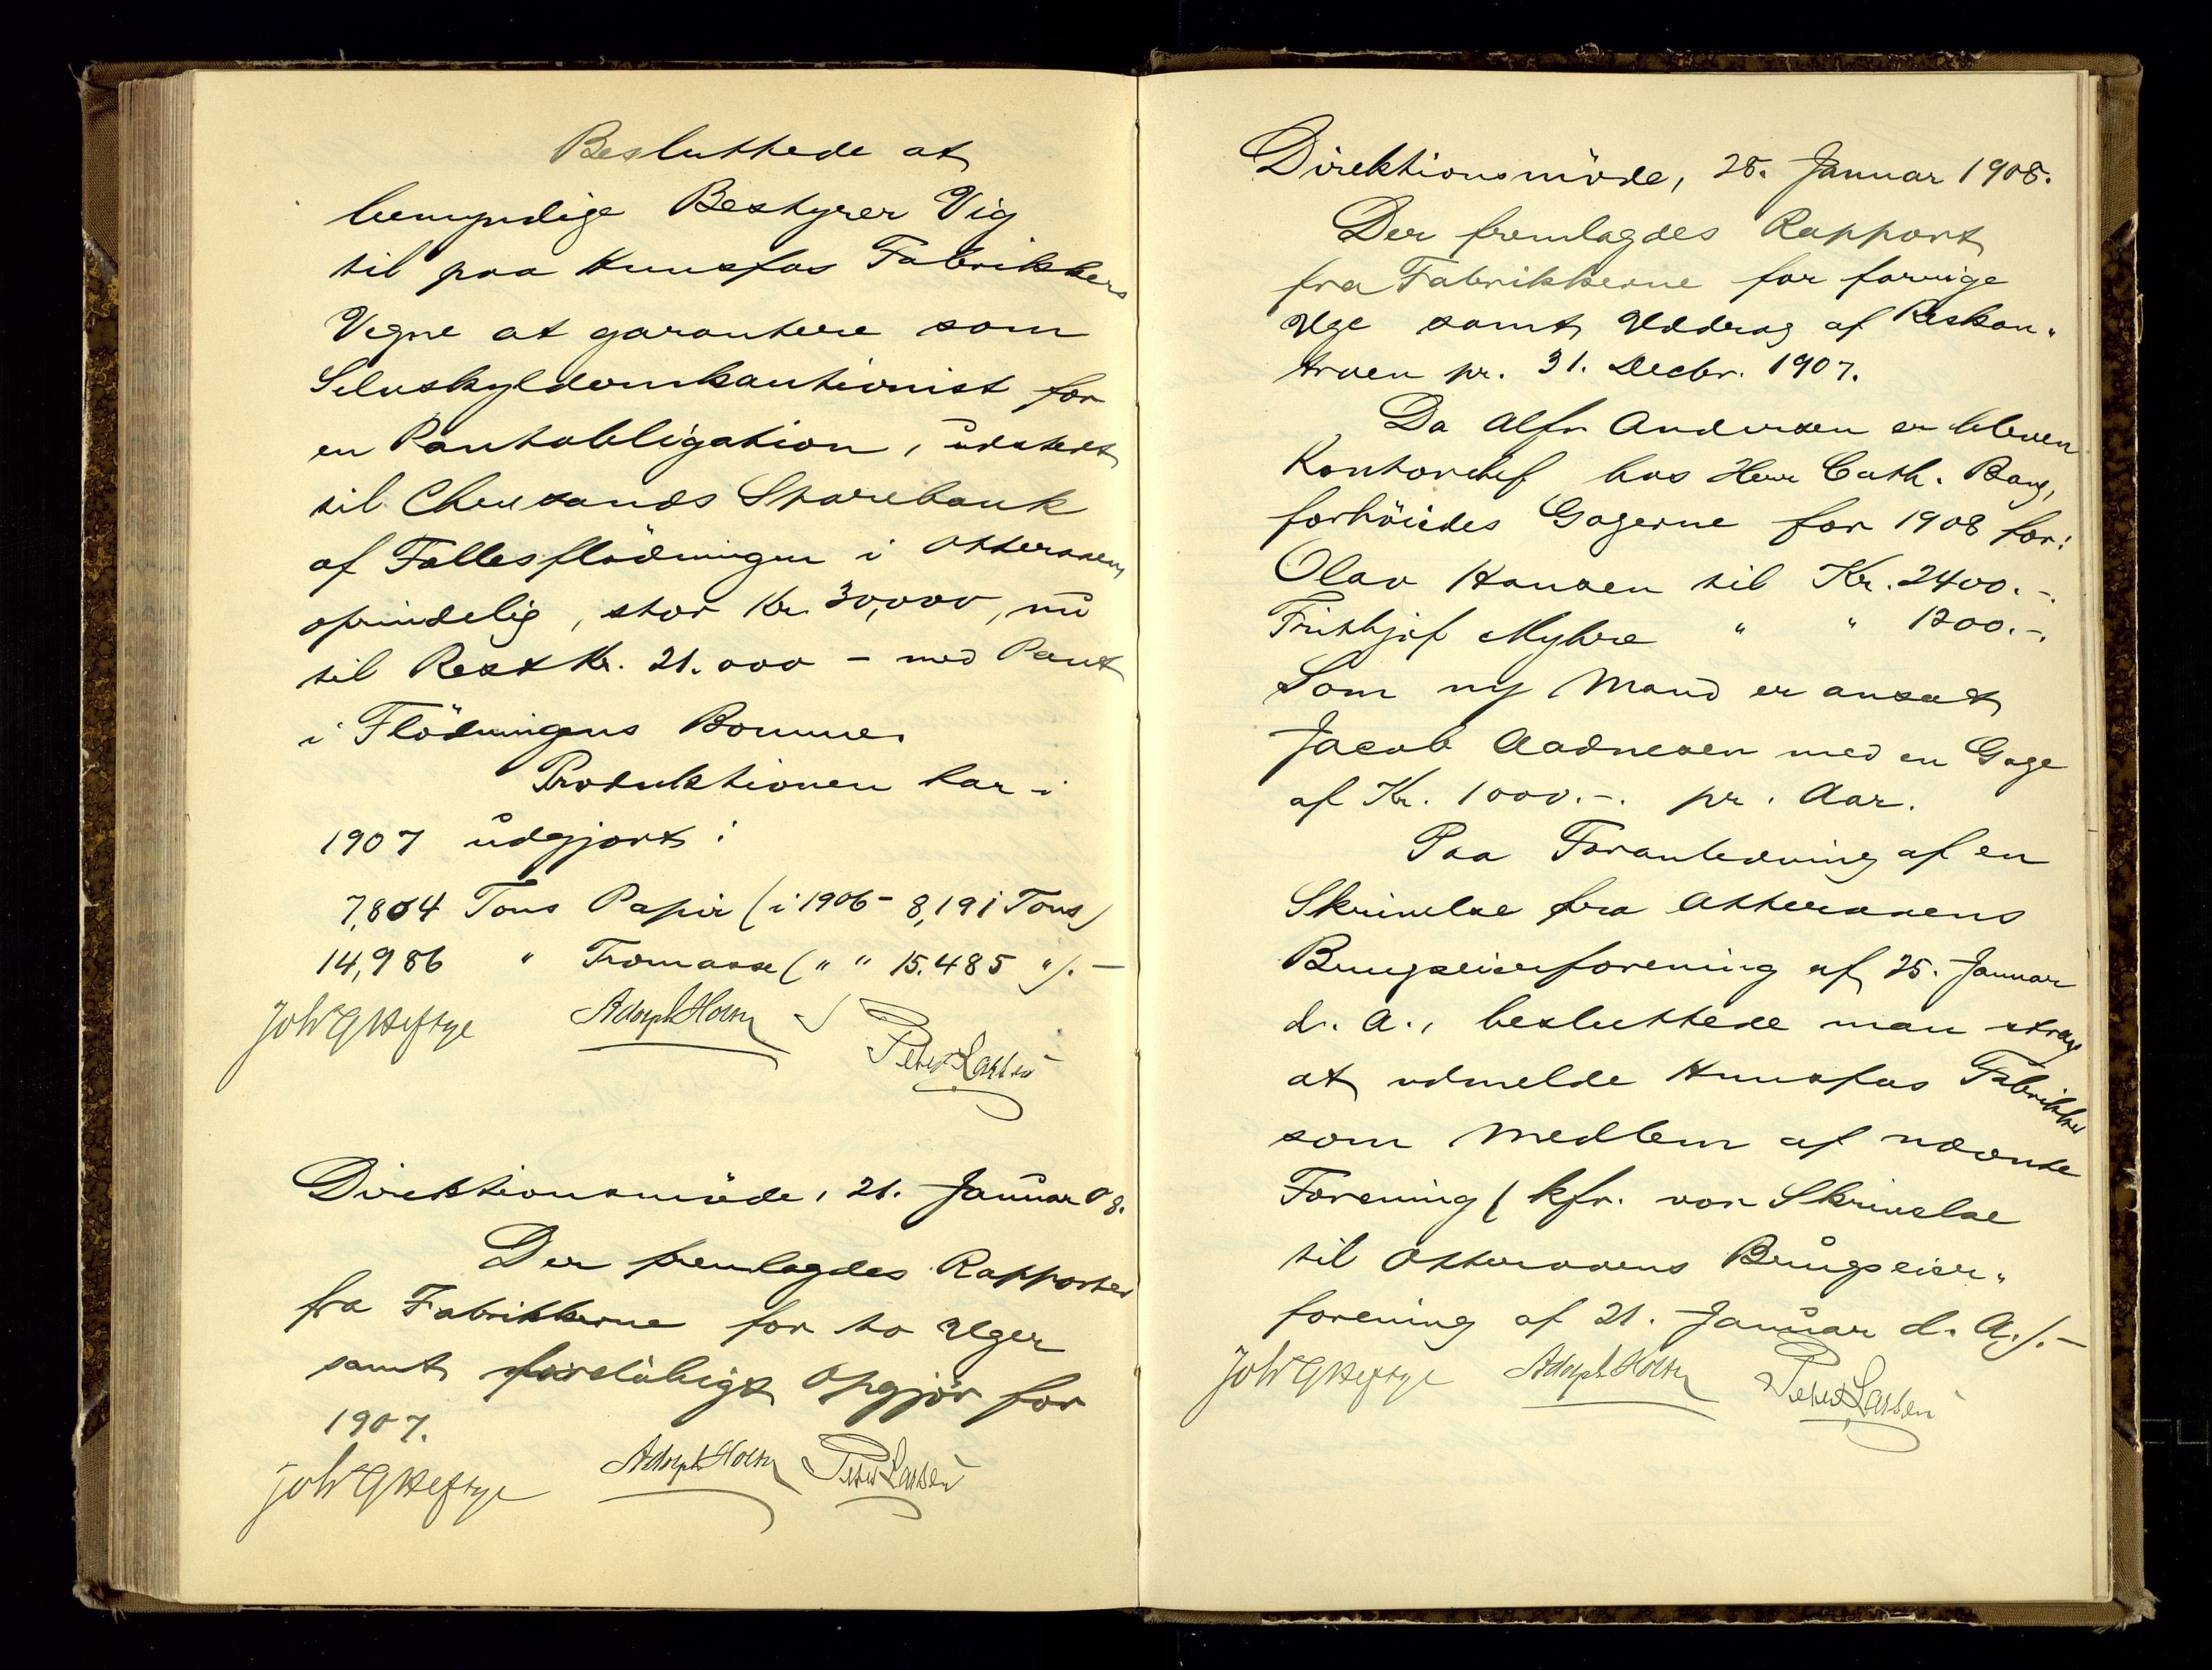 Besluttede at
bemyndige Bestyrer Vig
til paa Hunsfos Fabrikkers
Vegne at garantere som
Selvskyldnerkautionist for
en Pantobligation, udstedt
til Chrsands Sparebank
af Fællesflödningen i Otteraaen,
oprindelig, stor Kr. 30,000, nu
til Rest Kr. 21.000 – med Pant
i Flödningens Bomme.
Produktionen har i
1907 udgjort:
7,804 Tons Papir (i 1906 – 8,191 Tons)
14,986 " Træmasse (" " 15.485 "). –
Joh G Heftye Adolph Holm Peter Larsen
Direktionsmöde, 21. Januar 08.
Der fremlagdes Rapporter
fra Fabrikkerne for to Uger
samt foreløbigt Opgjör for
1907.
Joh G Heftye Adolph Holm Peter Larsen
Direktionsmöde, 28. Januar 1908.
Der fremlagdes Rapport
fra Fabrikkerne for forrige
Uge samt Uddrag af Reskon„
troen pr. 31. Decbr. 1907.
Da Alfr. Andersen er bleven
Kontorchef hos Herr Cath. Bang,
forhöiedes Gagerne for 1908 for:
Olav Hansen til Kr. 2400.-.
Frithjof Myhre " " 1200.-.
Som ny Mand er ansat
Jacob Aadnesen med en Gage
af Kr. 1000.-. pr. Aar.
Paa Foranledning af en
Skrivelse fra Otteraaens
Brugseierforening af 25. Januar
d. A., besluttede man strax
at udmelde Hunsfos Fabrikker
som Medlem af nævnte
Forening (kfr. vor Skrivelse
til Otteraaens Brugseier„
forening af 21. Januar d. A.). –
Joh G Heftye Adolph Holm Peter Larsen